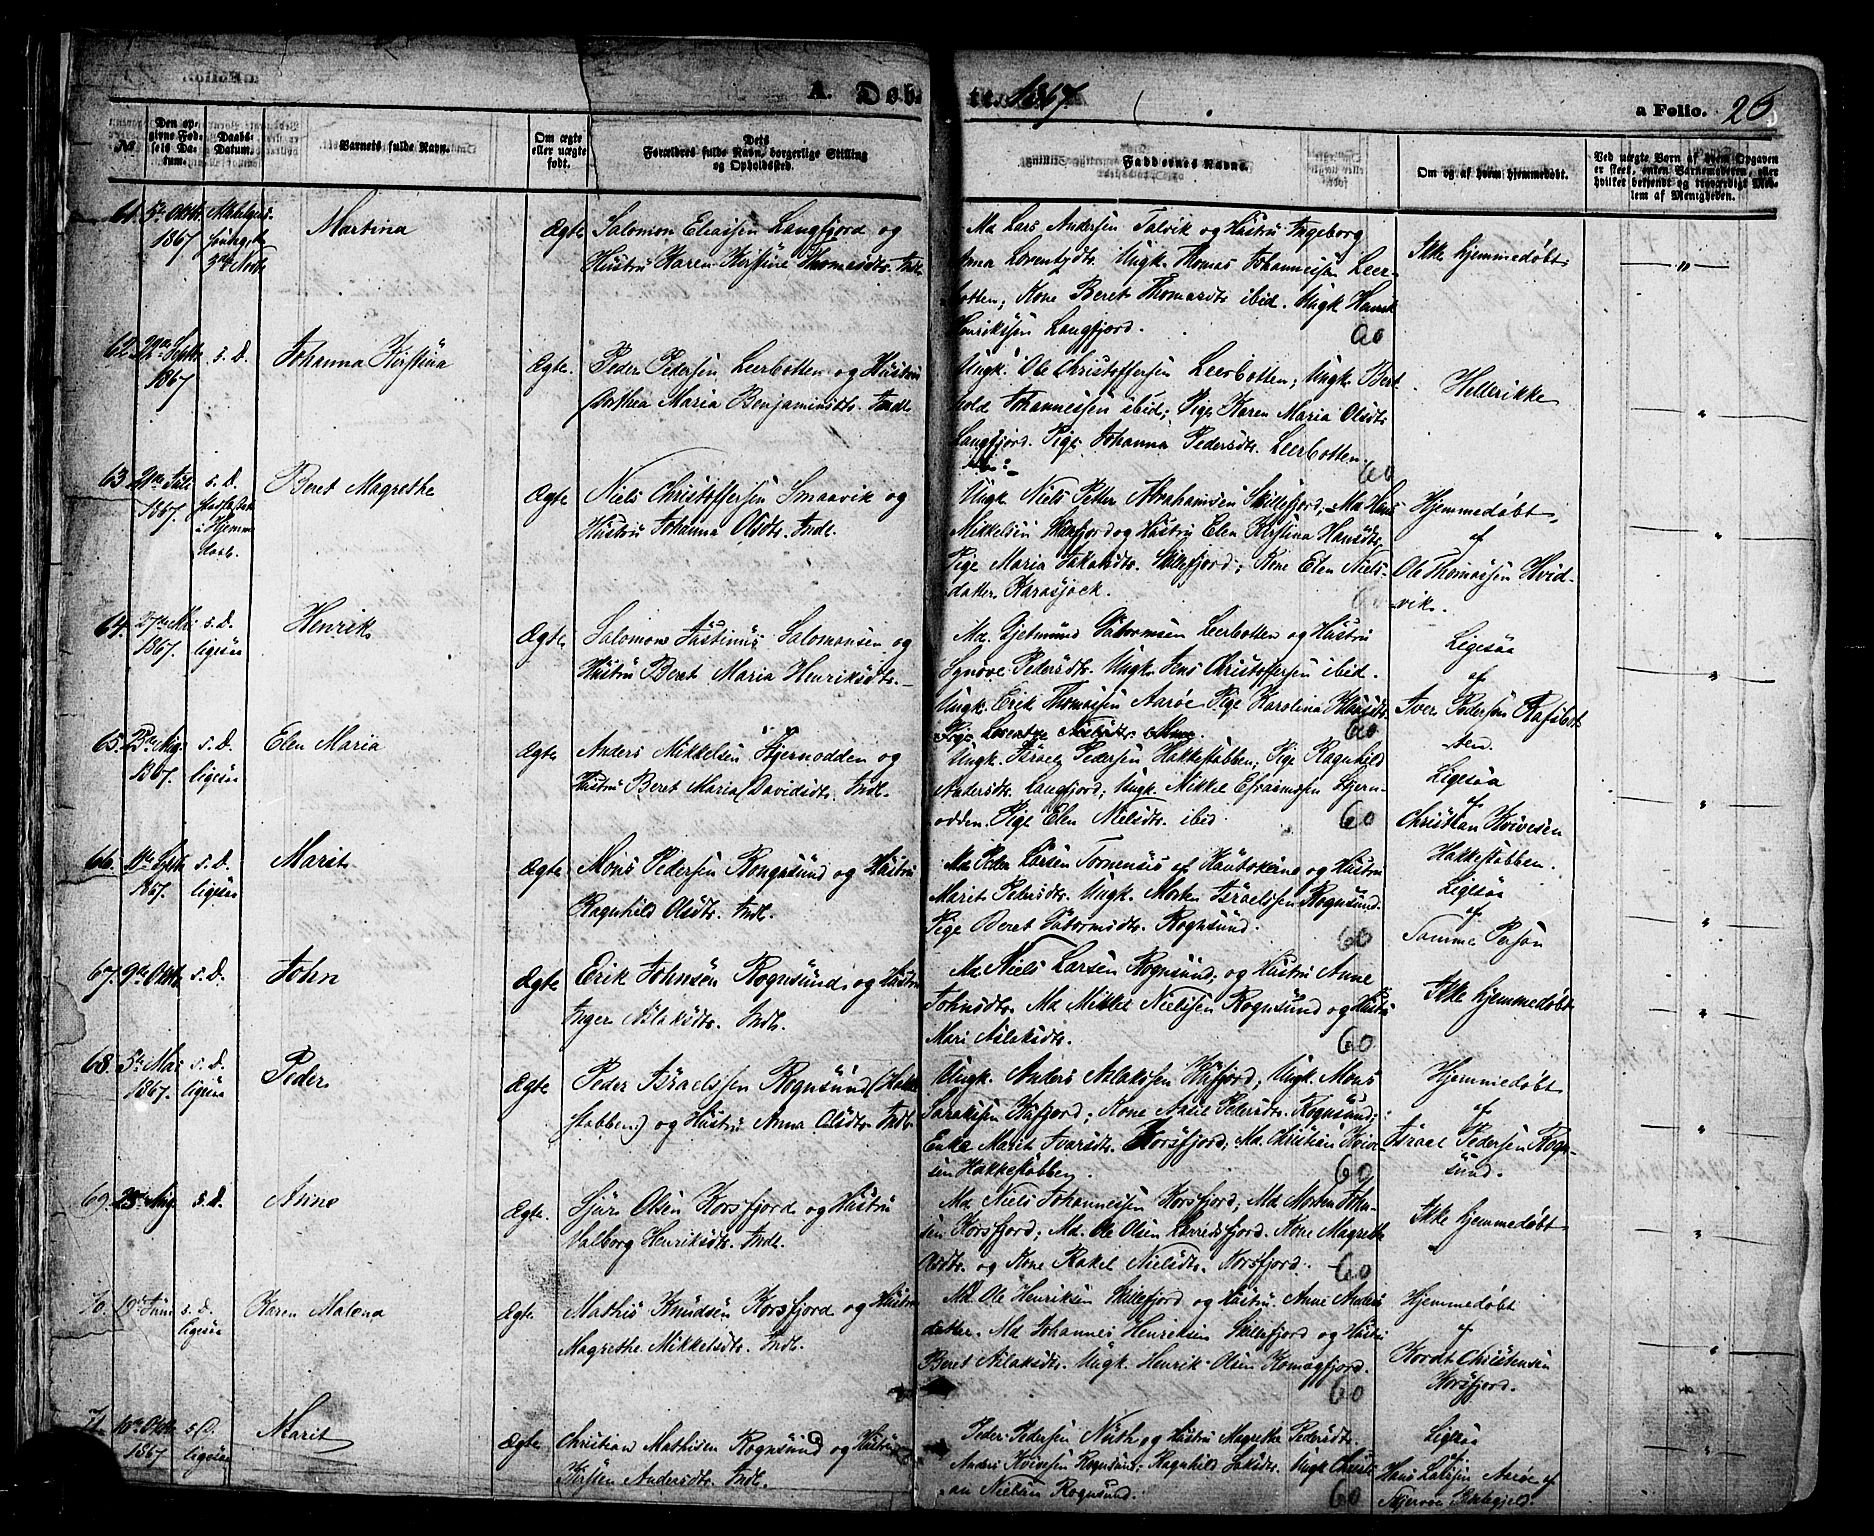 A. Døbte. 1867.
a Folio. 25
№
Den opgivne Fødsels Datum.
Daabs-Datum.
Barnets fulde Navn.
Om ægte eller uægte født.
Dets Forældres fulde Navn, borgerlige Stilling og Opholdssted.
Faddernes Navne.
Om og af hvem hjemmedøbt.
Ved uægte Børn af hvem Opgaven er skeet, enten Barnemoderen, eller hvilket bekjendt og troværdigt Medlem af Menigheden.
61. 5te Oktbr. Allehelgens- Martina Ægte Salomon Eliassen Langfjord og
1867 søndag
3die Novb. Hustru Karen Kirstine Thomasdtr. Indl.
Md. Lars Andersen Talvik og Hustru Ingeborg
Anna Lorentsdtr. Ungk. Thomas Johannesen Leer-
botten; Kone Beret Thomasdtr. ibid. Ungk. Hans
Henrikssen Langfjord. 60
Ikke hjemmedøbt
62. Septbr. s. D. Johanna Kirstina Ægte. Peder Pedersen Leerbotten og Hustru
1867 Dorthea Maria Benjaminsdtr. Indl.
Ungk. Ole Christoffersen Leerbotten; Ungk. Bert-
hold Johannessen ibid; Pige Karen Maria Olsdtr.
Langfjord. Pige Johanna Pedersdtr. Leerbotten.
60
Hellerikke
63. Juli s. D. Beret Magrethe Ægte Niels Christoffersen Smaavik og
1867. Stadfæstet
i Hjemme
daab. Hustru Johanna Olsdtr. Indl.
Ungk. Niels Petter Abrahamsen Skillefjord; Md. Hans
Mikkelsen Skillefjord og Hustru Elen Kirstina Hansdtr.
Pige Maria Jakobsdtr. Skillefjord; Kone Elen Niels-
datter Karasjock. 60
Hjemmedøbt
af
Ole Thomassen Hvid-
vik.
64. 27de s. D. Henrik Ægte Salomon Justinus Salomonsen og
1867. ligesaa Hustru Beret Maria Henriksdtr.
Md. Gjetmund Guttormsen Leerbotten og Hustru
Synøve Pedersdtr. Ungk. Jens Christoffersen ibid.
Ungk. Erik Thomassen Aarøe Pige Karolina Hansdtr.
Pige Lorentse Nielsdtr. 60
Ligesaa
af
Iver Pedersen Rafsbot-
ten.
65. 25de Aug. s. D. Elen Maria Ægte Anders Mikkelsen Stjernodden og
1867. ligesaa Hustru Beret Maria Davidsdtr. Indl.
Ungk. Israel Pedersen Hakkestabben; Pige Ragnhild
Andersdtr. Langfjord; Ungk. Mikkel Efraimsen Stjern-
odden. Pige Elen Nielsdtr. ibid 60
Ligesaa
af
Christian Kvivesen
Hakkestabben.
66. Septb. s. D. Marit Ægte Mons Pedersen Rognsund og Hustru
1867. ligesaa Ragnhild Olsdtr. Indl.
Md. Peder Larsen Tornensis af Kautokeino og Hustru
Marit Pedersdtr. Ungk. Morten Israelssen Rognsund.
Pige Beret Guttormsdtr. Rognsund. 60
Ligesaa
af
Samme Person
67. 9de Oktbr. s. D. John Ægte Erik Johnsen Rognsund og Hustru
Inger Aslaksdtr. Indl.
Md. Niels Larsen Rognsund; og Hustru Anne
Johnsdtr. Md. Mikkel Nielssen Rognsund og Hustru
Mari Aslaksdtr. 60
Ikke hjemmedøbt
68. 5te Mai s. D. Peder Ægte Peder Israelssen Rognsund (Hakke-
1867. ligesaa stabben) og Hustru Anna Olsdtr. Indl.
Ungk. Anders Aslakssen Kaafjord; Ungk. Mons
Larakssen Kaafjord; Kone Aasil Pedersdtr. Rognsund;
Enke Marit Ivarsdtr. Korsfjord; Md. Christian Kvive-
sen Hakkestabben. 60
Hjemmedøbt
af
Israel Pedersen Rogn-
sund.
69. Aug. s. D. Anne Ægte. Sjur Olsen Korsfjord og Hustru
Valborg Henriksdtr. Indl.
Md. Niels Johannessen Korsfjord; Md. Morten John-
sen Korsfjord; Md. Ole Olsen Leeredsfjord. Kone Magrethe
Olsdtr. og Kone Rakel Nielsdtr. Korsfjord. 60
Ikke hjemmedøbt
70. Juni s. D. Karen Malena Ægte. Mathis Knudsen Korsfjord og Hustru
ligesaa Magrethe Mikkelsdtr. Indl.
Md. Ole Henriksen Skillefjord og Hustru Anne Anders
datter. Md. Johannes Henriksen Skillefjord og Hustru
Beret Aslaksdtr. Ungk. Henrik Olsen Komagfjord.
60
Hjemmedøbt
af
Kordt Christensen
Korsfjord.
71. 10de Oktbr. s. D. Marit Ægte Christian Mathisen Rognsund og Hustru
1867 ligesaa Kirsten Andersdtr. Indl.
Peder Pedersen og Hustru Magrethe Pedersdtr.
Anders Kvivesen Rognsund; Ragnhild Ungk. Christi-
an Nielsen Rognsund. 60
Ligesaa
af
Hans Larssen Aarøe af
Skjervøe Præstegjeld.